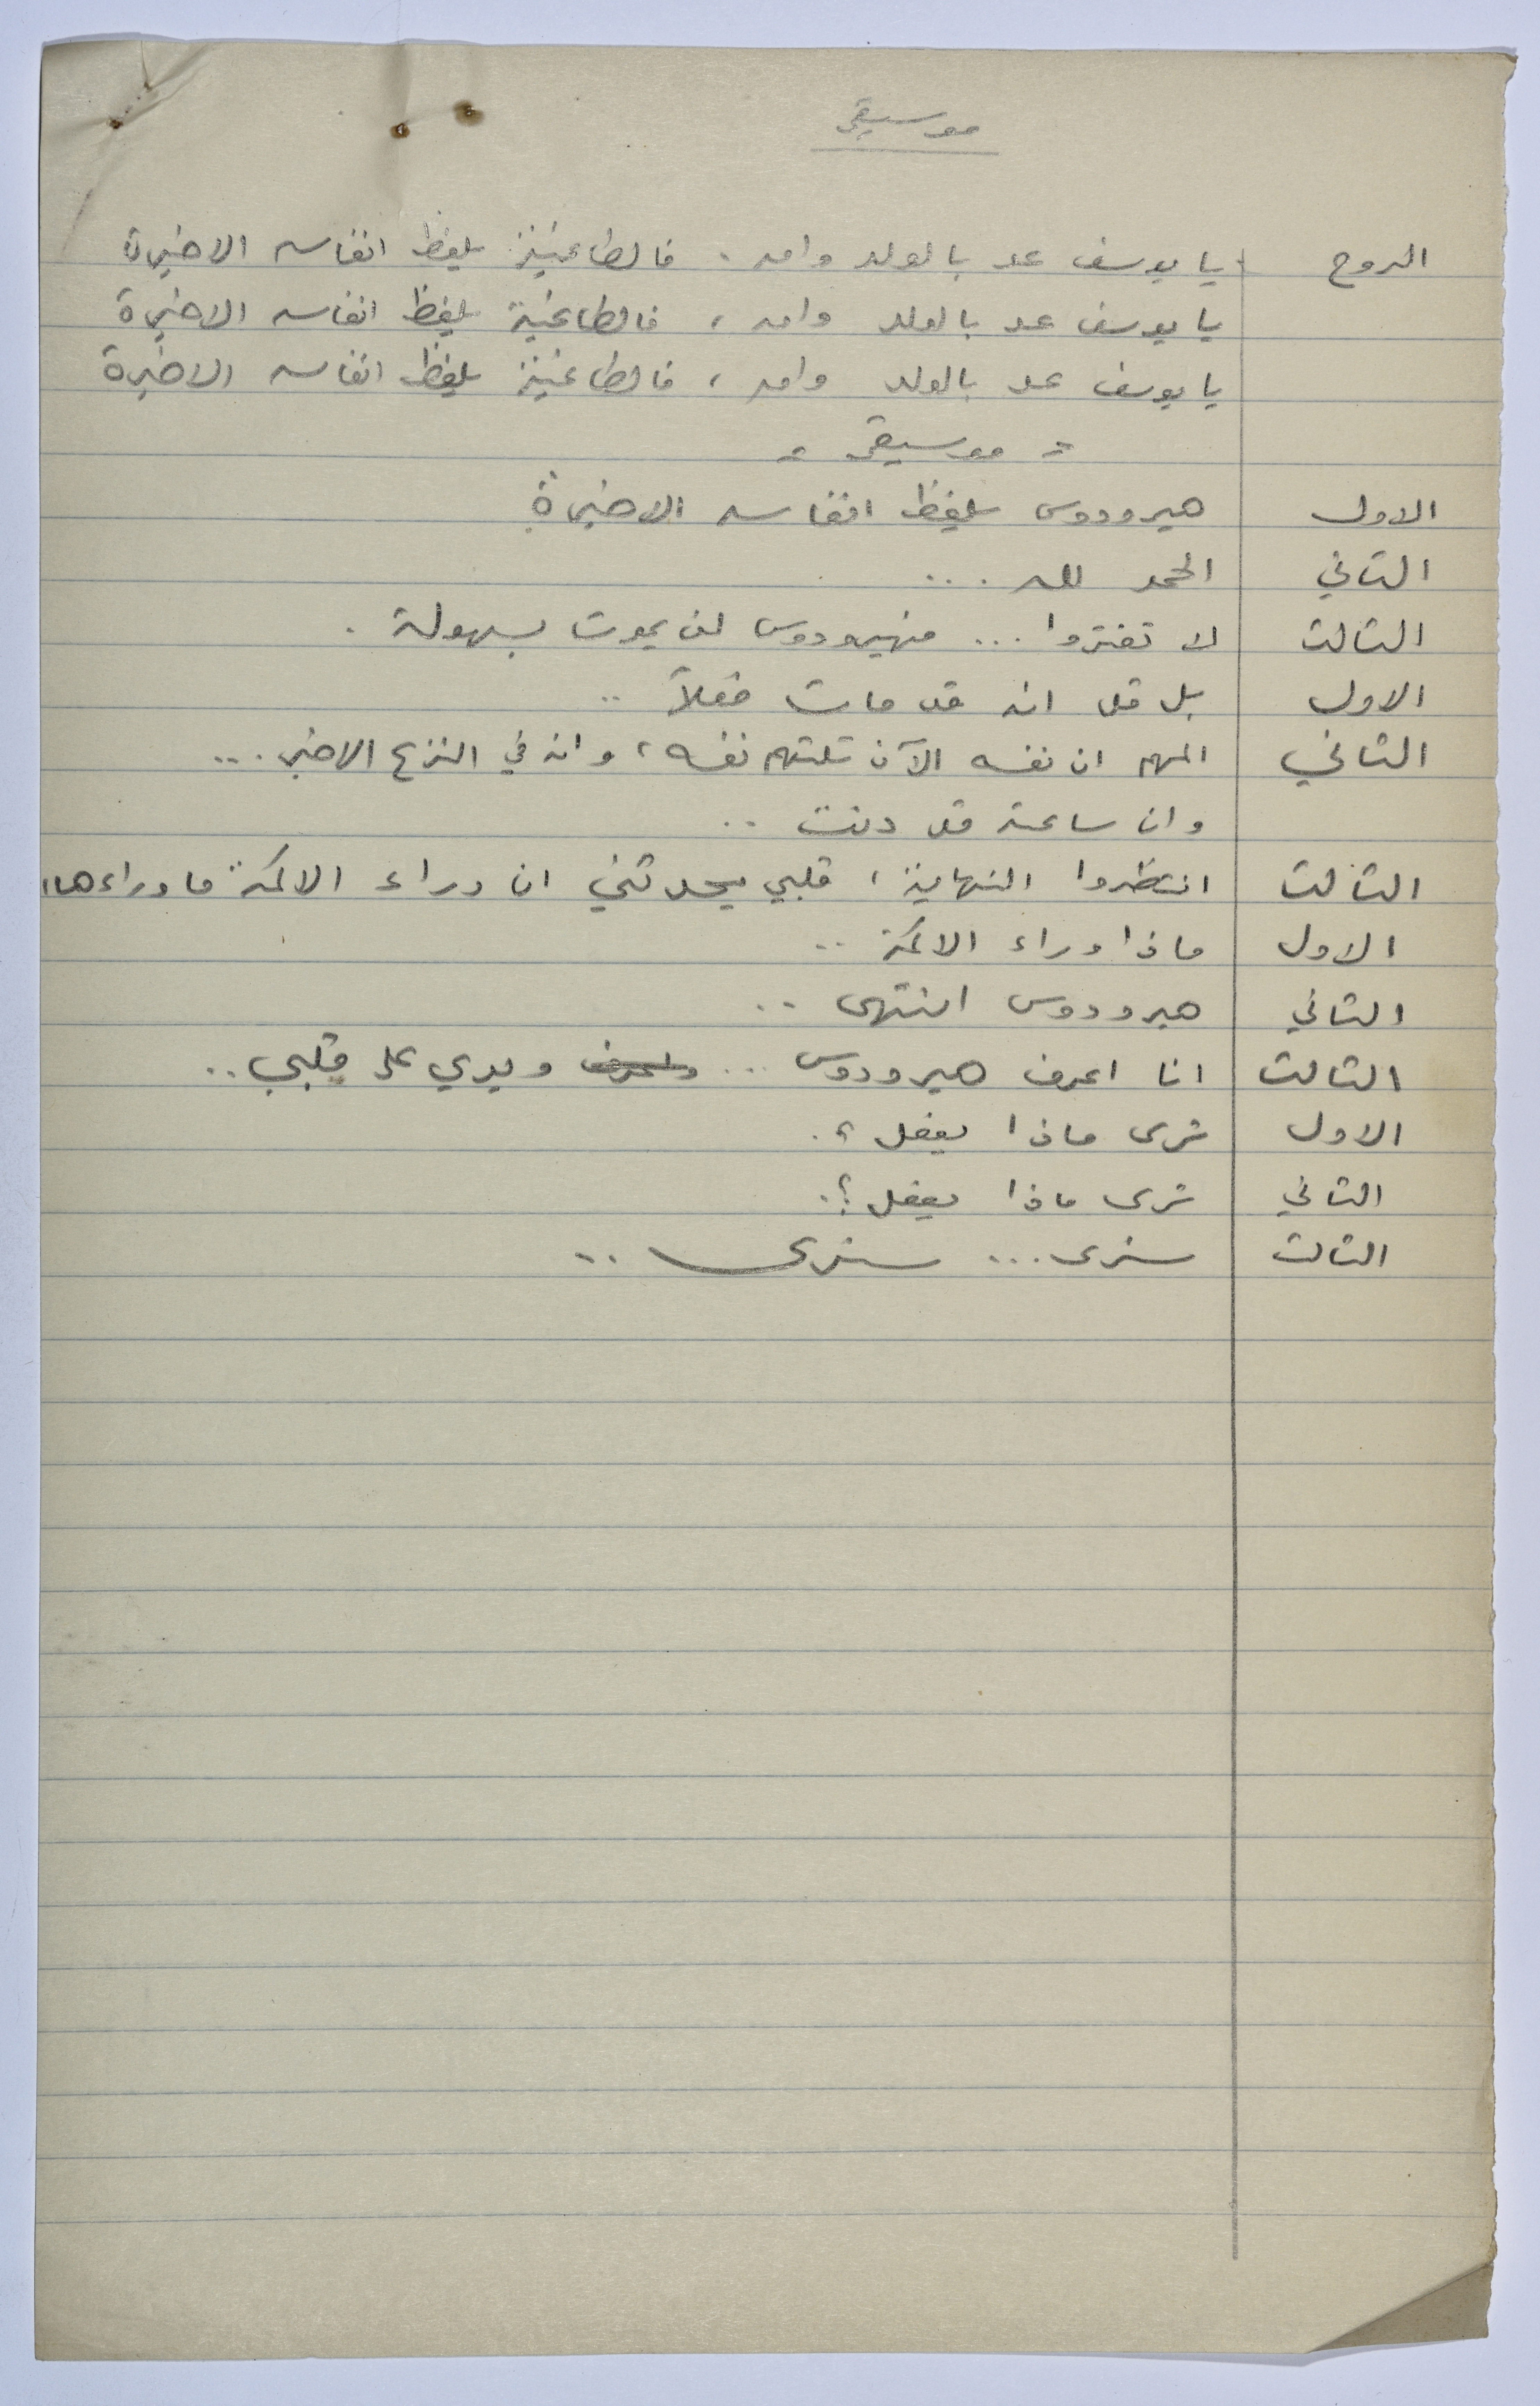 موسيقى
الروح يا يوسف عد بالولد وامه . فالطاغية يلفظ انفاسه الاخيرة
يا يوسف عد بالولد وامه ، فالطاغية يلفظ انفاسه الاخيرة
يا يوسف عد بالولد وامه ، فالطاغية يلفظ انفاسه الاخيرة
= موسيقى =
الاول هيرودوس يلفظ انفاسه الاخيرة
الثاني الحمد لله ...
الثالث لا تغتروا ... فهيرودوس لن يموت بسهولة .
الاول بل قل انه قد مات فعلاً ..
الثاني المهم ان نفسه الآن تلتهم نفسه ، وانه في النزع الاخير ...
وان ساعته قد دنت ..
الثالث انتظروا النهاية ، قلبي يحدثني ان وراء الاكمة ما وراءها
الاول ماذا وراء الاكمة ..
الثاني هيرودوس انتهى ..
الثالث انا اعرف هيرودوس ... ويدي على قلبي ..
الاول ترى ماذا يفعل ؟.
الثاني ترى ماذا يفعل ؟.
الثالث سنرى ... سنرى ..